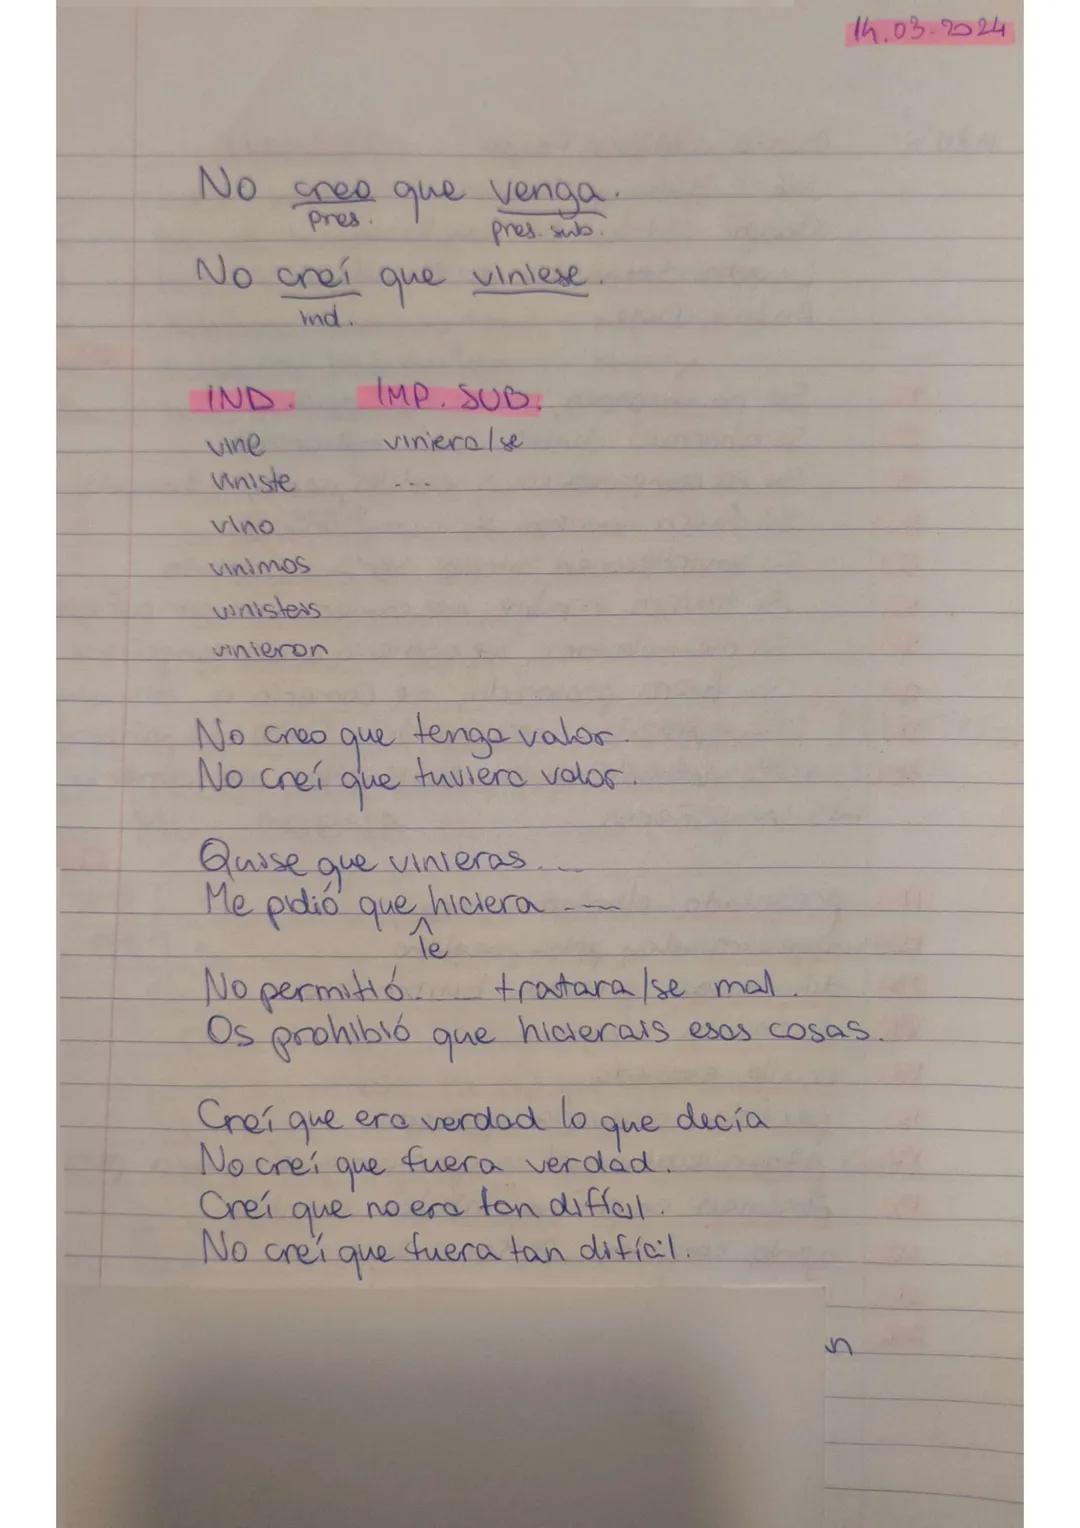 14.03.2024
No creo que venga.
pres. pres. sub.
No creí que viniese.
ind.
IND. IMP. SUB.
vine viniera/se
viniste ...
vino
vinimos
vinisteis
vinieron
No creo que tenga valor.
No creí que tuviera valor.
Quise que vinieras...
Me pidió que hiciera ...
le
No permitió... tratara/se mal.
Os prohibió que hicierais esas cosas.
Creí que era verdad lo que decía
No creí que fuera verdad.
Creí que no era tan difícil.
No creí que fuera tan difícil.
n